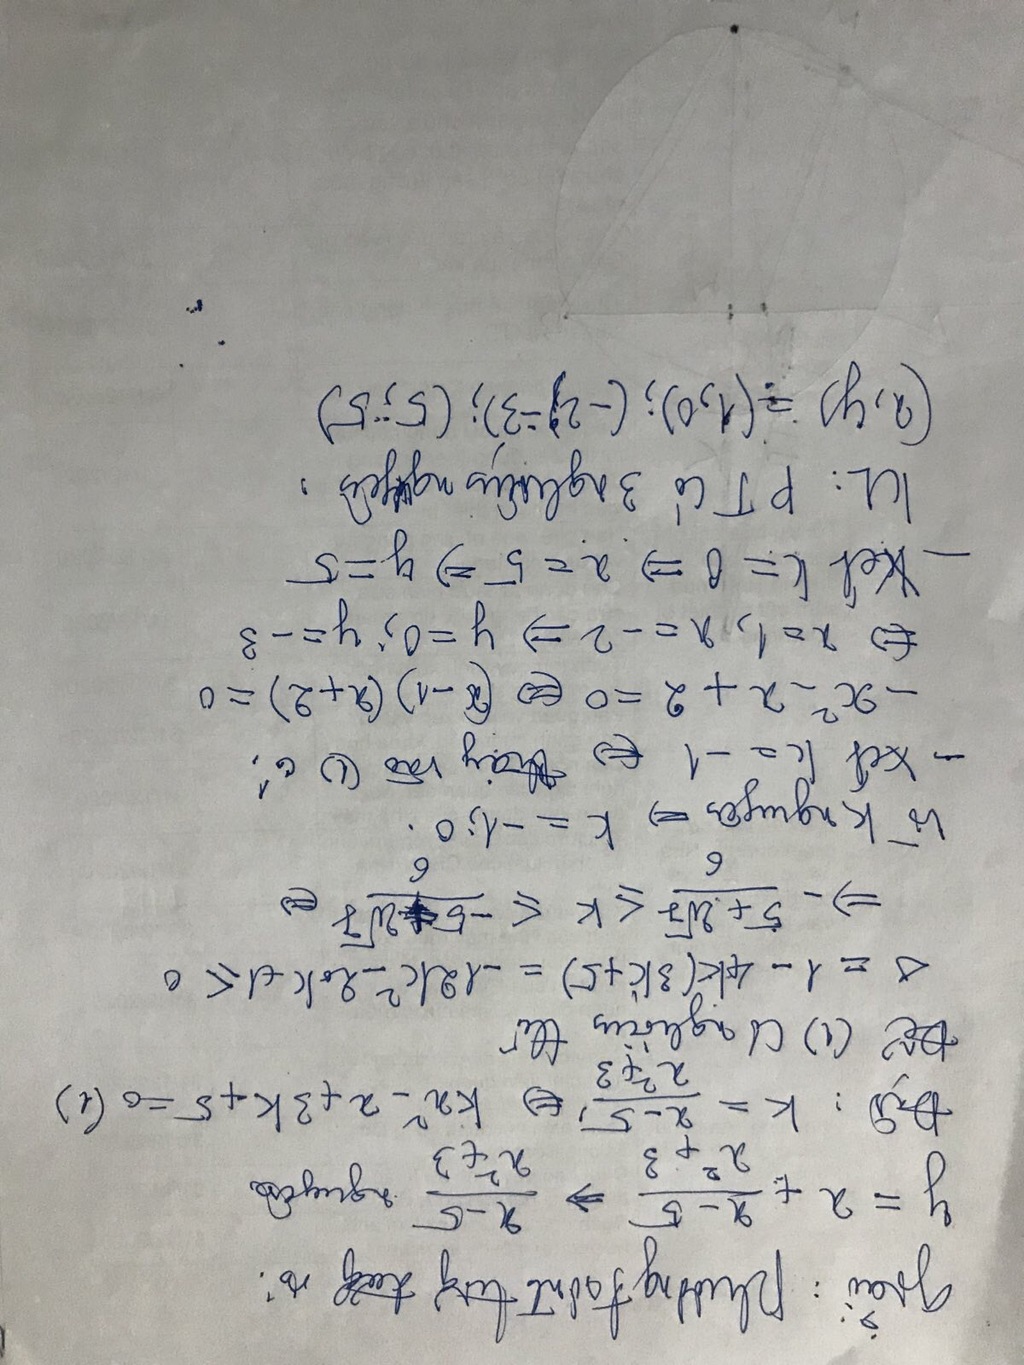 Giải: phương trình
y = x + \frac{x-5}{x^2+3} => \frac{x-5}{x^2+3} nguyên
Đặt: k = \frac{x-5}{x^2+3} <=> kx^2 - x + 3k + 5 = 0 (1)
Để (1) có nghiệm thì
Δ = 1 - 4k(3k+5) = -12k^2 - 20k + 1 ≤ 0
=> - \frac{5+2\sqrt{7}}{6} ≤ k ≤ \frac{-5+2\sqrt{7}}{6} <=>
Vì k nguyên => k = -1; 0.
- Xét k = -1 <=> thay vào (1) có:
-x^2 - x + 2 = 0 <=> (x-1)(x+2) = 0
<=> x = 1, x = -2 => y = 0; y = -3
- Xét k = 0 => x = 5 => y = 5
KL: PT có 3 nghiệm nguyên:
(x,y) = (1,0); (-2;-3); (5;5)